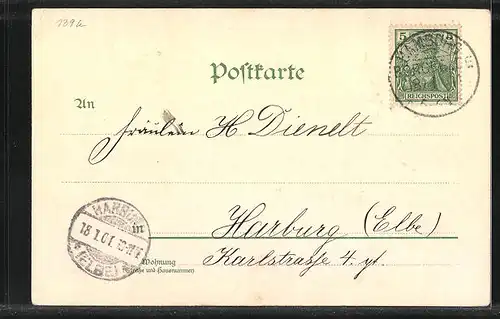 139a
5
REICHSPOST
Postkarte
An
Fräulein H Dienelt
in
Harburg (Elbe)
Wohnung
(Straße und Hausnummer)
Karlstrasse 4.
HARBURG
18.1.01.
(ELBE)